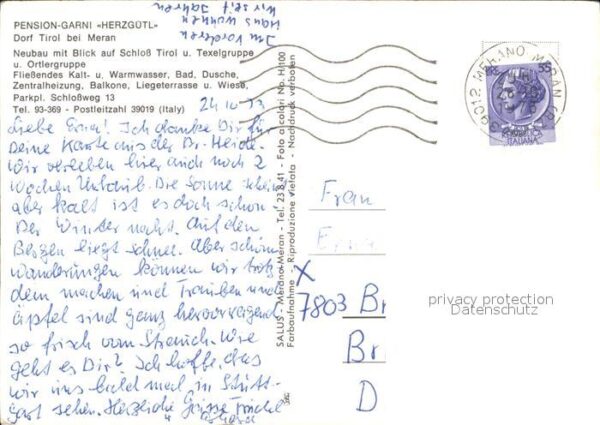 PENSION-GARNI «HERZGÜTL»
Dorf Tirol bei Meran
Neubau mit Blick auf Schloß Tirol u. Texelgruppe
u. Ortlergruppe
Fließendes Kalt- u. Warmwasser, Bad, Dusche,
Zentralheizung, Balkone, Liegeterrasse u. Wiese,
Parkpl. Schloßweg 13
Tel. 93-369 - Postleitzahl 39019 (Italy)
Im vorderen
Haus wohnen
wir seit Jahren
Liebe Erna! Ich danke Dir für
Deine Karte aus der Br. Heide.
Wir verleben hier auch noch 2
Wochen Urlaub. Die Sonne scheint
aber kalt ist es doch schon
Der Winter naht. Auf den
Bergen liegt Schnee. Aber schöne
Wanderungen können wir trotz
dem machen und Trauben und
Äpfel sind ganz hervorragend
so frisch vom Strauch. Wie
geht es Dir? Ich hoffe, das
wir uns bald mal in Stutt-
gart sehen. Herzliche Grüsse
SALUS - Merano-Meran - Tel. 23 8 41 - Foto a colori No. H/100
Farbaufnahme - Riproduzione vietata - Nachdruck verboten
39012 MERANO MERAN
ITALIANA
Frau
Erna
x
7803 Br
Br
D
privacy protection
Datenschutz